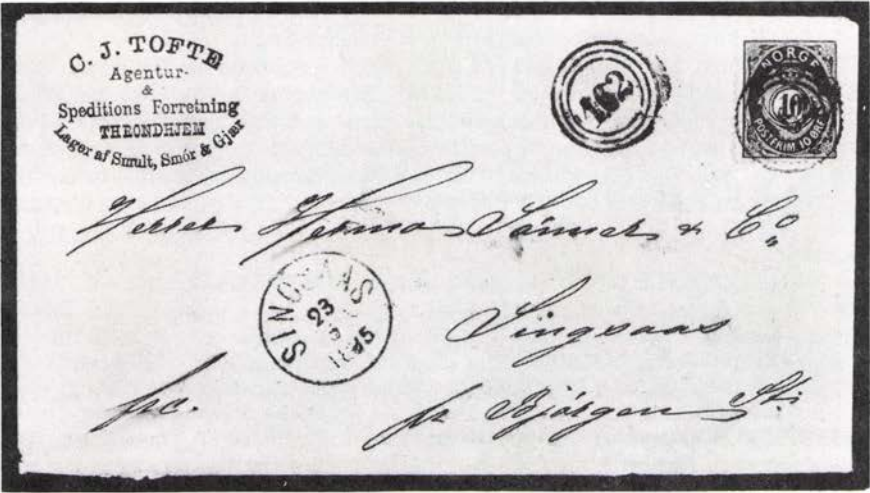 C. J. TOFTE
Agentur-
&
Speditions Forretning
THRONDHJEM
Lager af Smult, Smör & Gjær
462
NORGE
10
POSTFRIM. 10 ØRE
Herrer Sönner & Co
SINGSAAS
23
5
1885
Singsaas
frc.
pr Björgen St: